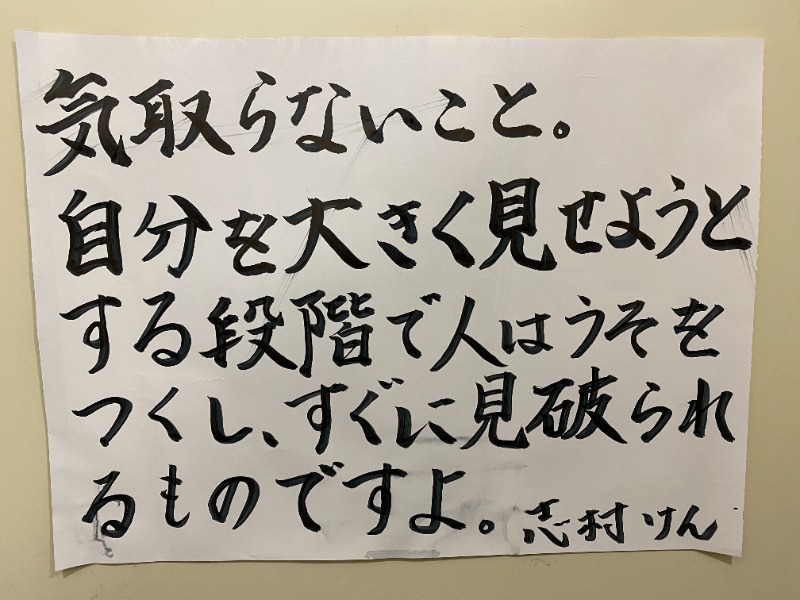 気取らないこと。
自分を大きく見せようと
する段階で人はうそを
つくし、すぐに見破られ
るものですよ。志村けん